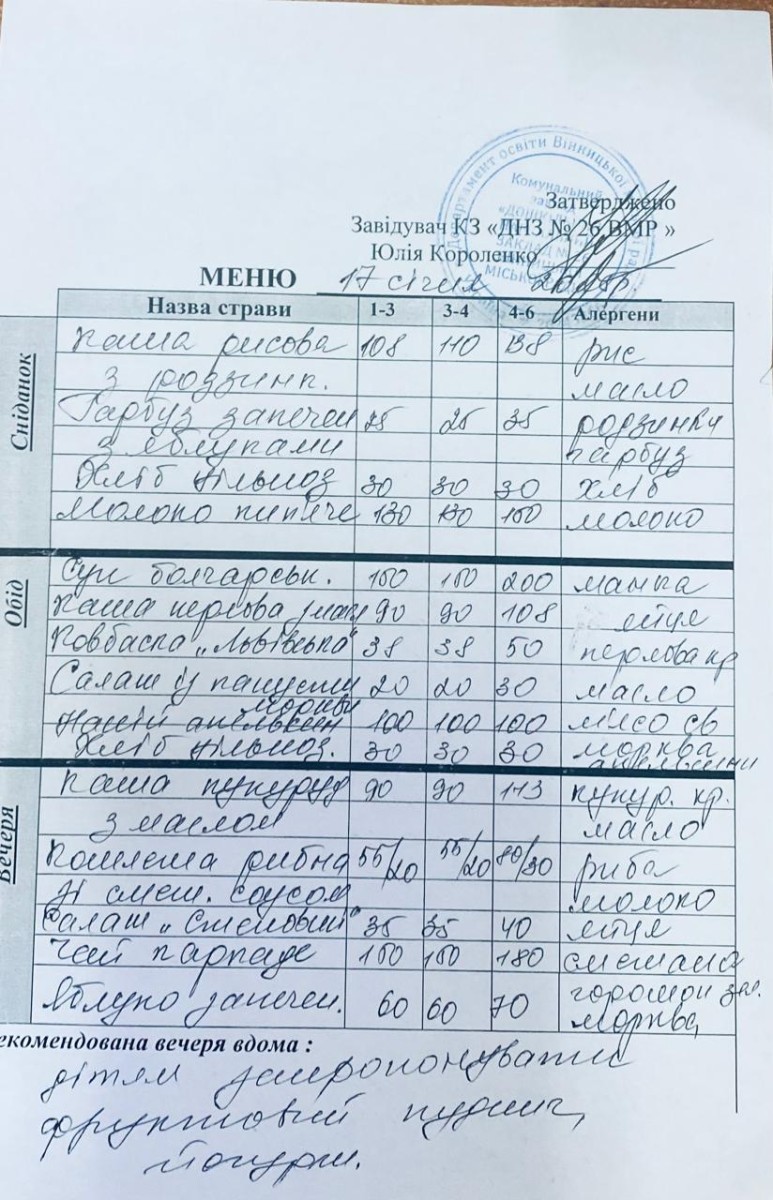 Департамент освіти Вінницької
Комунальний
Затверджено
Завідувач КЗ «ДНЗ № 26 ВМР »
Юлія Короленко
МЕНЮ 17 січня
Назва страви 1-3 3-4 4-6 Алергени
Сніданок
Каша рисова 108 110 138 рис
з родзинк. масло
Гарбуз запечен 25 25 35 родзинки
з яблуками гарбуз
Хліб цільноз 30 30 30 хліб
Молоко кип'яче 130 130 150 молоко
Обід
Суп болгарськ. 150 150 200 манка
Каша перлова з мас 90 90 108 яйце
Ковбаска „Львівська" 38 38 50 перлова кр
Салат із капусти 20 20 30 масло
моркви
Напій апельсин 100 100 100 м'ясо св
Хліб цільноз. 30 30 30 морква
апельсини
Вечеря
Каша кукуруд 90 90 113 кукур. кр.
з маслом масло
Котлета рибна 55/20 55/20 80/30 риба
зі смет. соусом молоко
Салат „Степовий" 35 35 40 яйце
Чай каркаде 150 150 180 сметана
Яблуко запечен. 60 60 70 горошок зел.
морква
екомендована вечеря вдома :
дітям запропонувати
фруктовий пудинг,
йогурт.